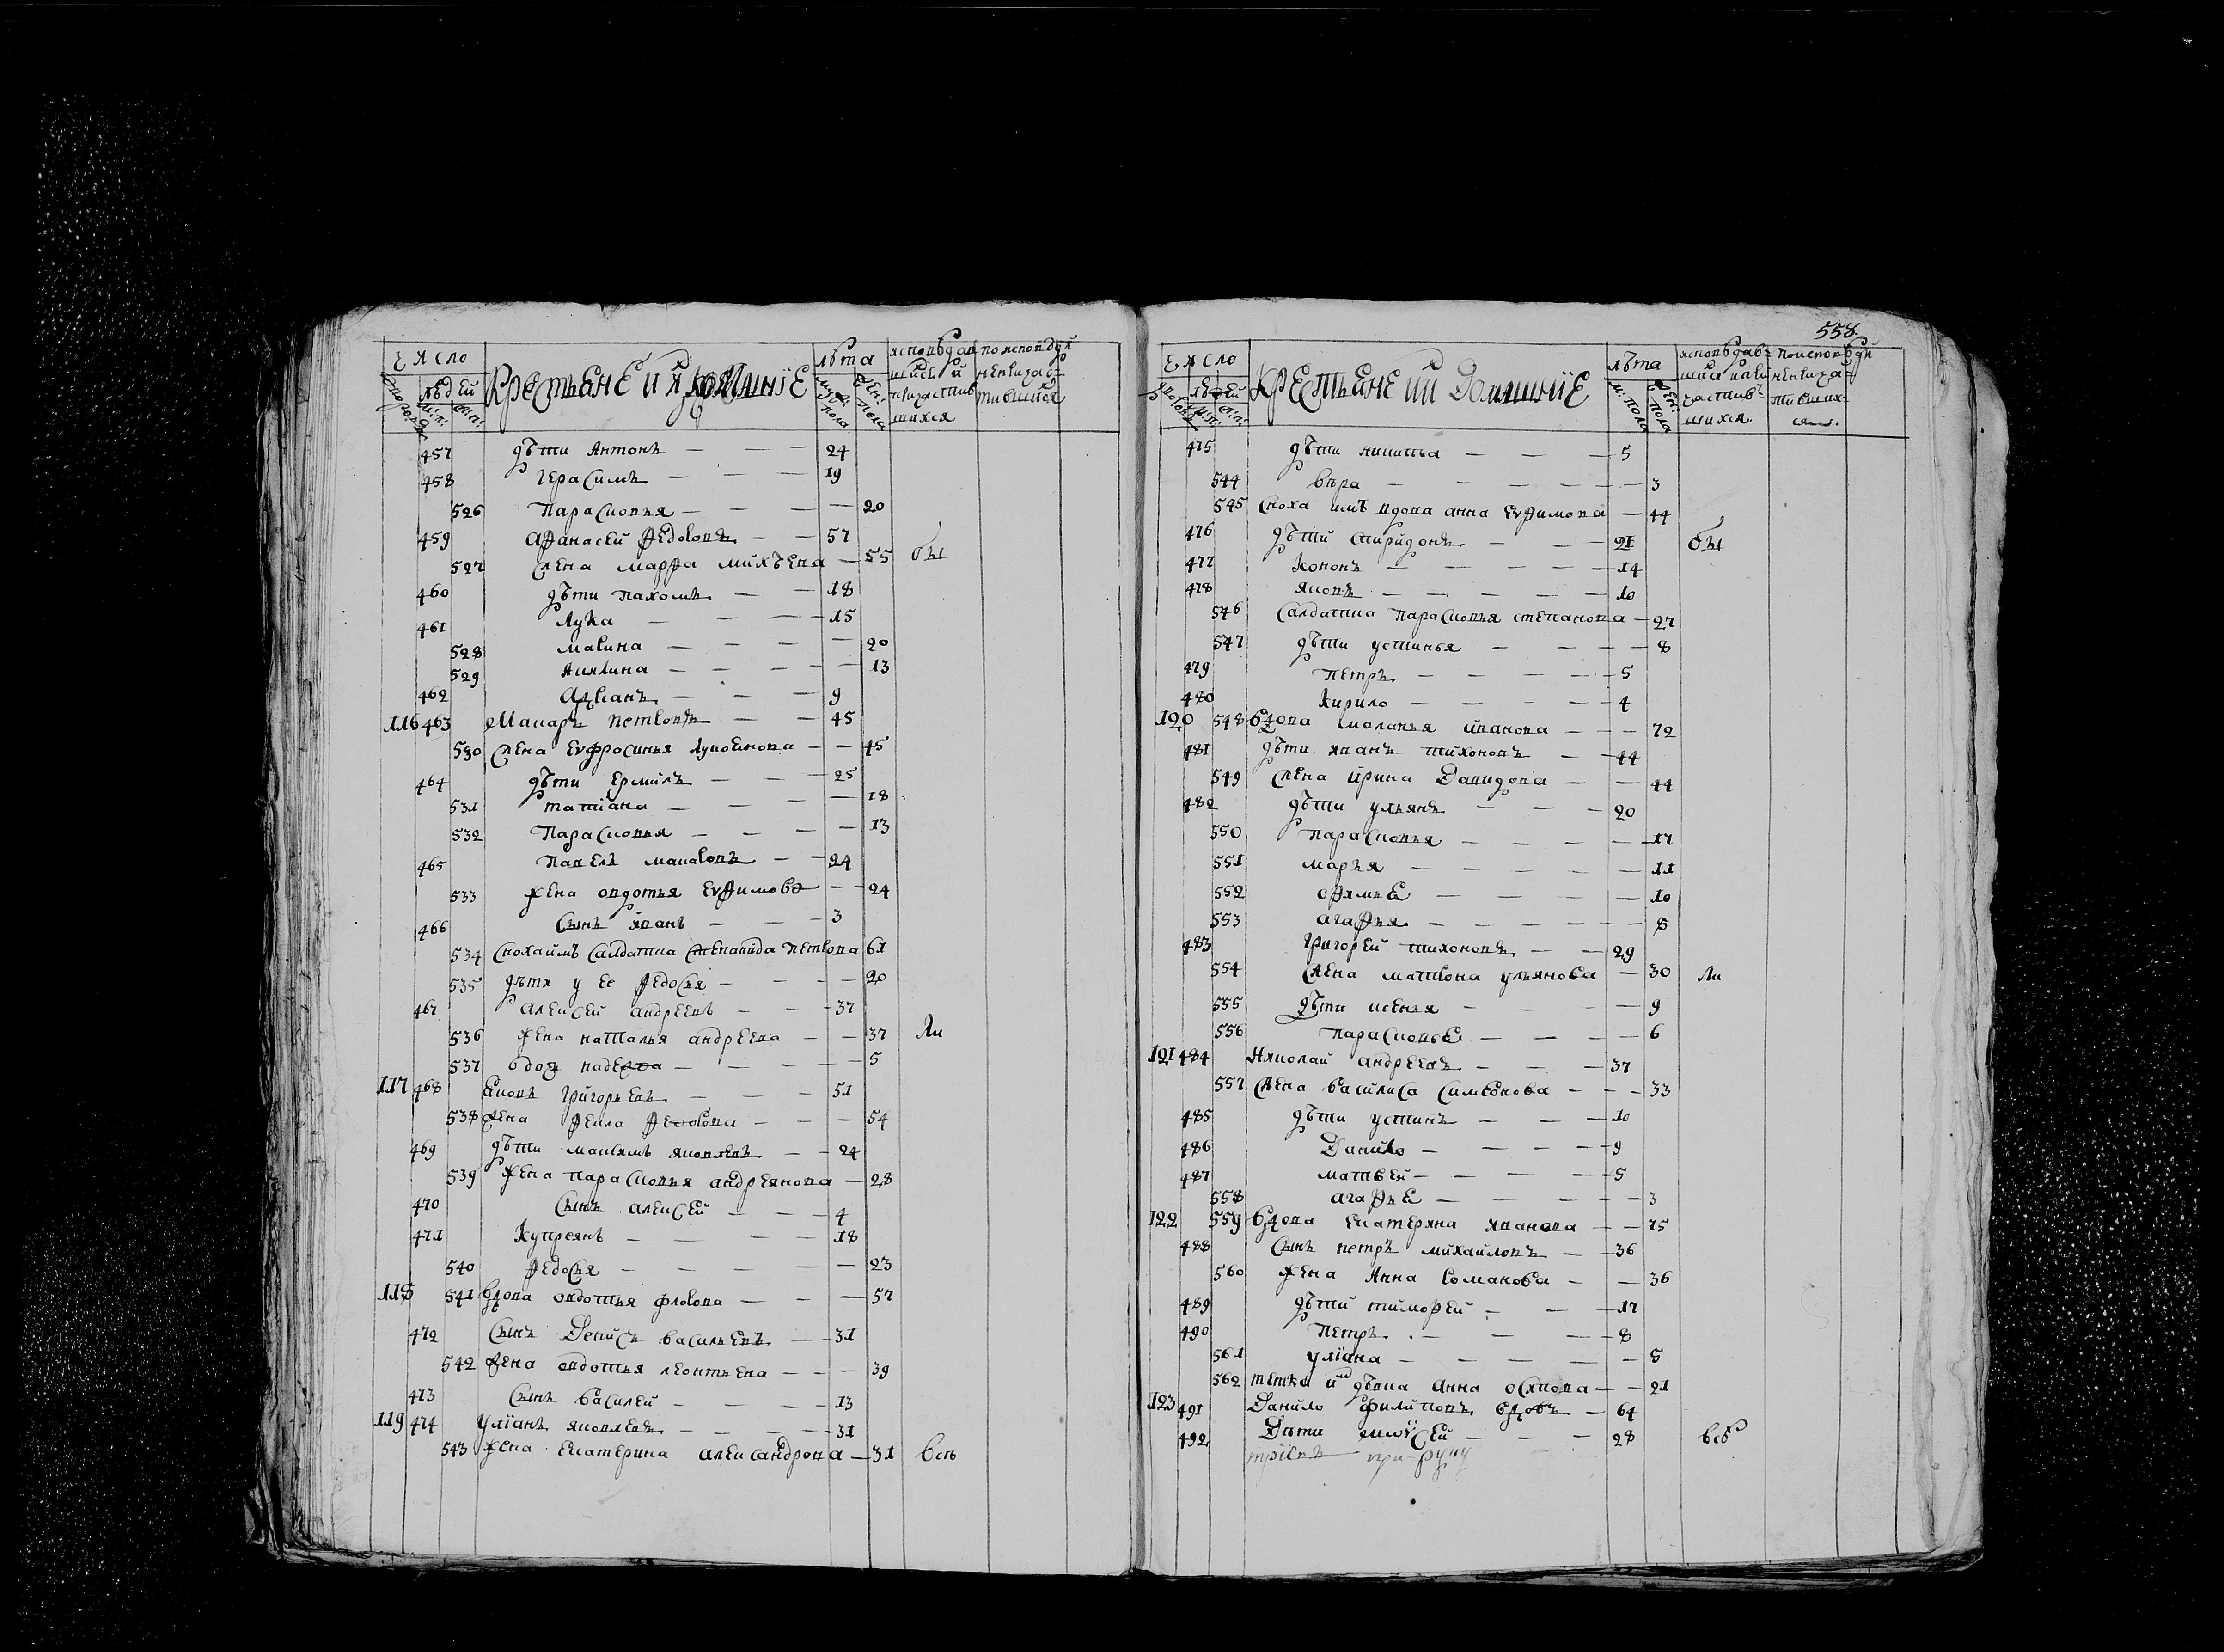 число
людей
м:п:
ж:п:
Крестьяне и домашние
лѣта
муж: пола
жен: пола
исповѣдавшихся и причастившихся
по исповѣди не причастившихся
457 дѣти Антонъ — — — 24
458 Герасимъ — — — 19
526 Парасковья — — — — 20
459 Афанасей Федоровъ — — 57
527 жена Марфа Михѣева — 55 бы
460 дѣти Пахомъ — — 18
461 Лука — — — 15
528 Марина — — — — 20
529 Акилина — — — — 13
462 Адрианъ — — — 9
116 463 Макаръ Петровъ — — 45
530 жена Еуфросинья Лукоянова — — 45
464 дѣти Ермилъ — — — 25
531 татиана — — — — 18
532 Парасковья — — — — 13
465 Павелъ Макаровъ — — 24
533 жена овдотья Еуфимова — — 24
466 сынъ иванъ — — — 3
534 сноха имъ салдатка Степанида Петрова 61
535 дѣти у ее Федосья — — — 20
467 алексей андреевъ — — — 37
536 жена наталья андреева — — 37 ли
537 вдов надежда — — — — 5
117 468 яковъ Григорьевъ — — — 51
538 жена Фекла Федорова — — — 54
469 дѣти максимъ яковлевъ — — 24
539 жена парасковья андреянова — 28
470 сынъ алексей — — — 4
471 Купреянъ — — — — 18
540 Федосья — — — — — 23
118 541 вдова овдотья флорова — — — 57
472 сынъ Денисъ васильевъ — — 31
542 жена овдотья леонтьева — — — 39
473 сынъ василей — — — — 13
119 474 улианъ яковлевъ — — — — 31
543 жена Екатерина александрова — 31 всѣ
558.
число
людей
м:п:
ж:п:
Крестьяне ии Домашние
лѣта
м: пола
жен: пола
исповѣдавшихся и причастившихся.
по исповѣди не причастившихся.
475 дѣти никита — — — 5
544 вѣра — — — — — — 3
545 сноха имъ вдова анна Еуфимова — 44
476 дѣти спиридонъ — — — 21 бы
477 Кононъ — — — — — 14
478 яковъ — — — — — 10
546 салдатка парасковья степанова — 27
547 дѣти устинья — — — — 8
479 петръ — — — — — 5
480 Кирило — — — — — 4
120 548 вдова маланья иванова — — — 72
481 дѣти иванъ тихоновъ — — 44
549 жена ирина Давидова — — 44
482 дѣти ульянъ — — — 20
550 парасковья — — — — — 17
551 марья — — — — — 11
552 офимья — — — — — 10
553 агафья — — — — — 8
483 Григорей тихоновъ — — 29
554 жена матрона ульянова — 30 ли
555 дѣти ксенья — — — — 9
556 парасковья — — — — 6
121 484 Николай андреевъ — — — 37
557 жена василиса симеонова — — — 33
485 дѣти устинъ — — — 10
486 Данило — — — — 9
487 матвей — — — — 5
558 агафья — — — — — 3
122 559 вдова екатерина иванова — — 75
488 сынъ петръ михайловъ — — 36
560 жена Анна романова — — 36
489 дѣти тимофей — — — 17
490 петръ — — — — 8
561 улиана — — — — — 5
562 тетка им дѣвка анна осипова — — 21
123 491 Данило филиповъ вдовъ — 64
492 Дѣти — — — 28 всѣ